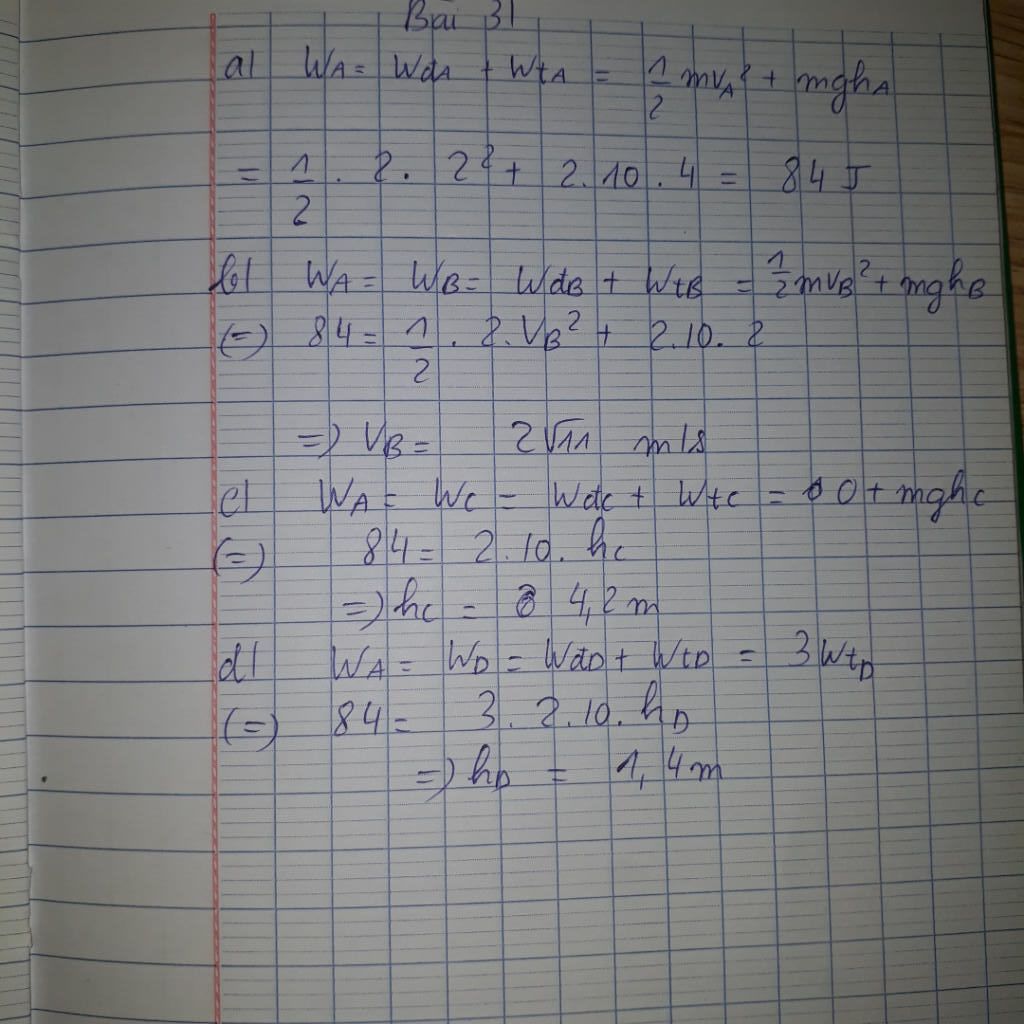 Bài 3|
a| WA = WdA + WtA = 1/2 mvA² + mghA
= 1/2 . 2 . 2² + 2.10.4 = 84 J
b| WA = WB = WdB + WtB = 1/2 mvB² + mghB
(=) 84 = 1/2 . 2.VB² + 2.10.2
=) VB = 2√11 m/s
c| WA = WC = Wdc + Wtc = 0 + mghc
(=) 84 = 2.10.hc
=) hc = 4,2 m
d| WA = WD = WdD + WtD = 3WtD
(=) 84 = 3.2.10.hD
=) hD = 1,4 m